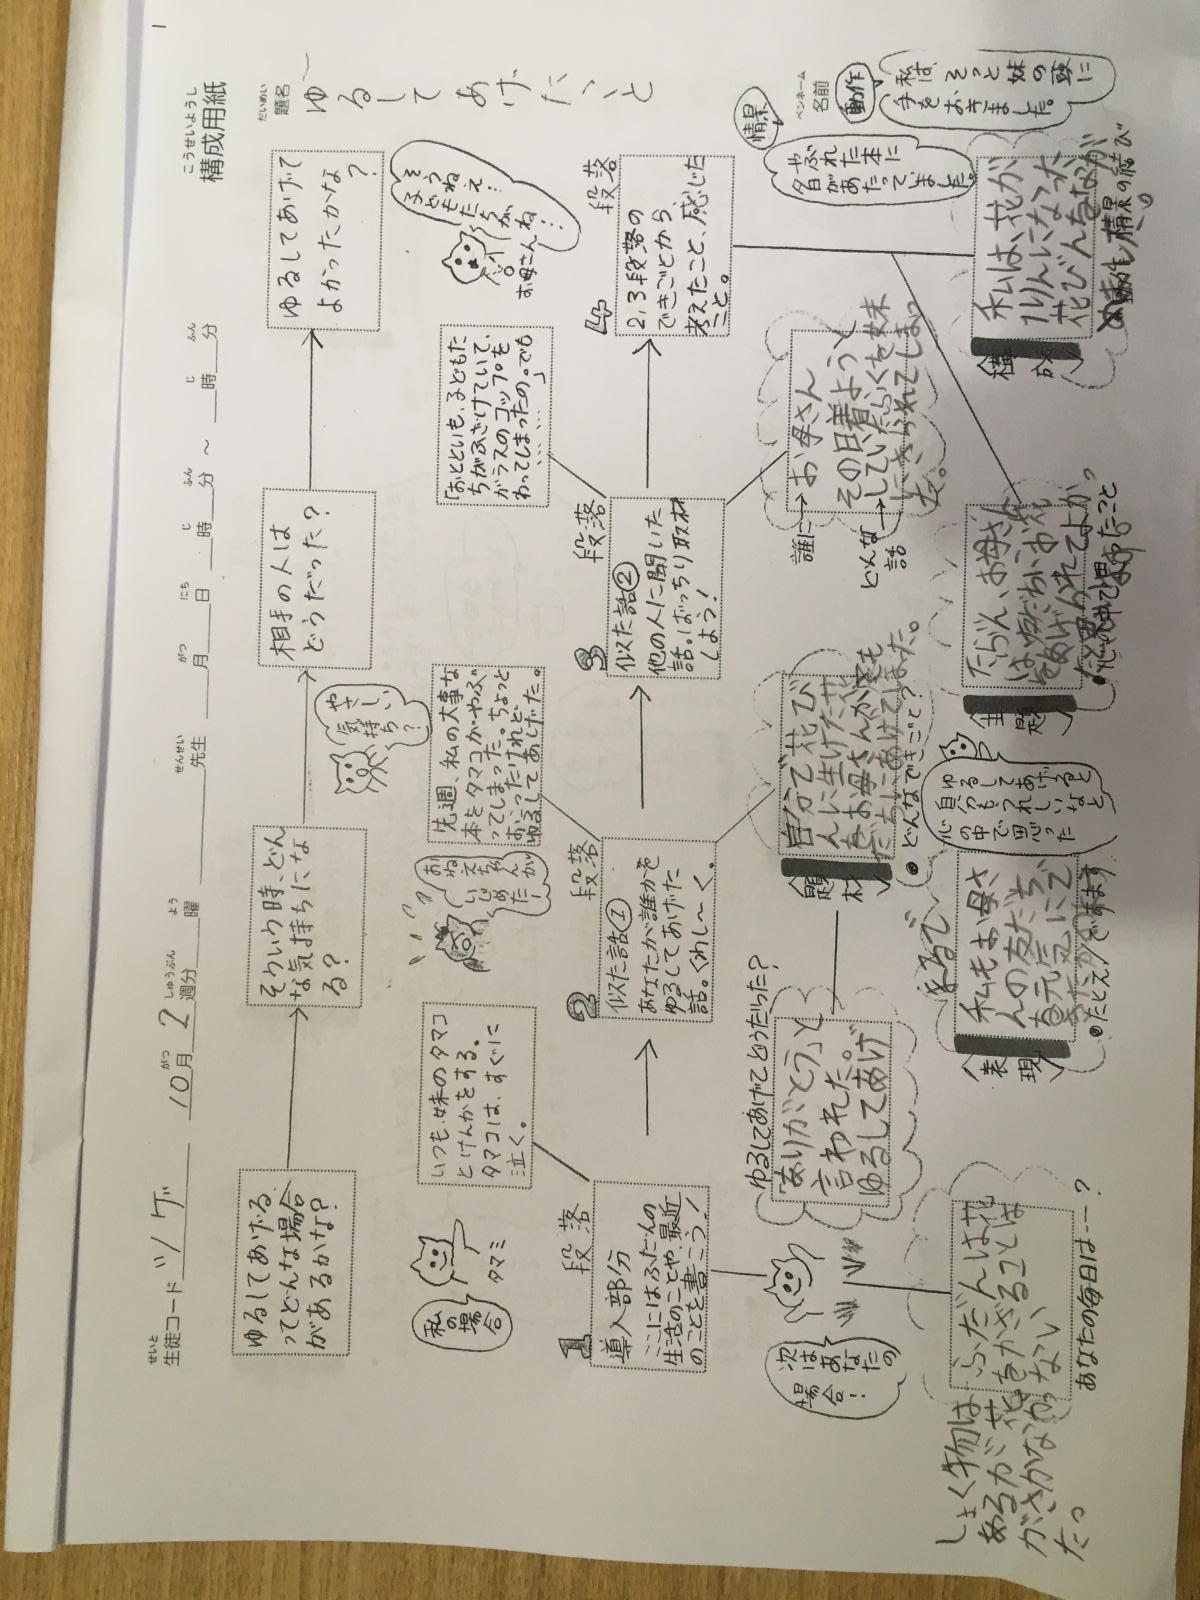 こうせいようし
構成用紙
せいと
生徒コード ツゲ
がつ しゅうぶん よう
10月 2週分 曜
せんせい
先生
がつ にち じ ふん じ ふん
月 日 時 分 ～ 時 分
だいめい
題名
ゆるしてあげたこと
ペンネーム
名前
ゆるしてあげる
ってどんな場合
があるかな?
そういう時、どん
な気持ちにな
る?
相手の人は
どうだった?
ゆるしてあげて
よかったかな
?
私の
場合
タマミ
いつも、妹のタマコ
とけんかをする。
タマコは、すぐに
泣く。
おねえちゃんが
いじめた!
やさしい
気持ち?
先週、私の大事な
本をタマコがやぶ
ってしまった。ちょっと
おこったけれど
ゆるしてあげた。
「おとといも、子どもた
ちがふざけていて、
ガラスのコップを
わってしまったの。でも
……」
そうねえ!
子どもたちがね!
お母さん
1 段落
導入部分
ここにはふだんの
生活のことや、最近
のことを書こう!
2 段落
似た話①
あなたが誰かを
ゆるしてあげた
話。くわし〜く。
3 段落
似た話②
他の人に聞いた
話。ばっちり取材
しよう!
4 段落
2,3段落の
できごとから、
考えたこと、感じた
こと。
情景
やぶれた本に
夕日があたっていました。
動作
私は、そっと妹の頭に
手をおきました。
次は
あなたの
場合!
ゆるしてあげてどうだった?
「ありがとう」と
言われた。
ゆるしてあげ
題材
自分で花び
んに生けた花
をお母さんが友
だちにあげてしまった。
・どんなできごと?
誰に→お母さん
どんな話→その日着ようと
していたふくを妹
にきられてしまっ
た。
しょく物は
あるが花
がさかなかっ
た。
ふだんは花
をかざることは
ない
あなたの毎日は……?
表現
まるで
私もお母さ
んの友だち
も元気にで
・たとえ/できます
ゆるしてあげると
自分もうれしいなと
心の中で思った
主題
たぶん、お母さん
・心の中で思ったこと
構成
私は、花が
1りんになった
花びんをなが
・動作情景の結び